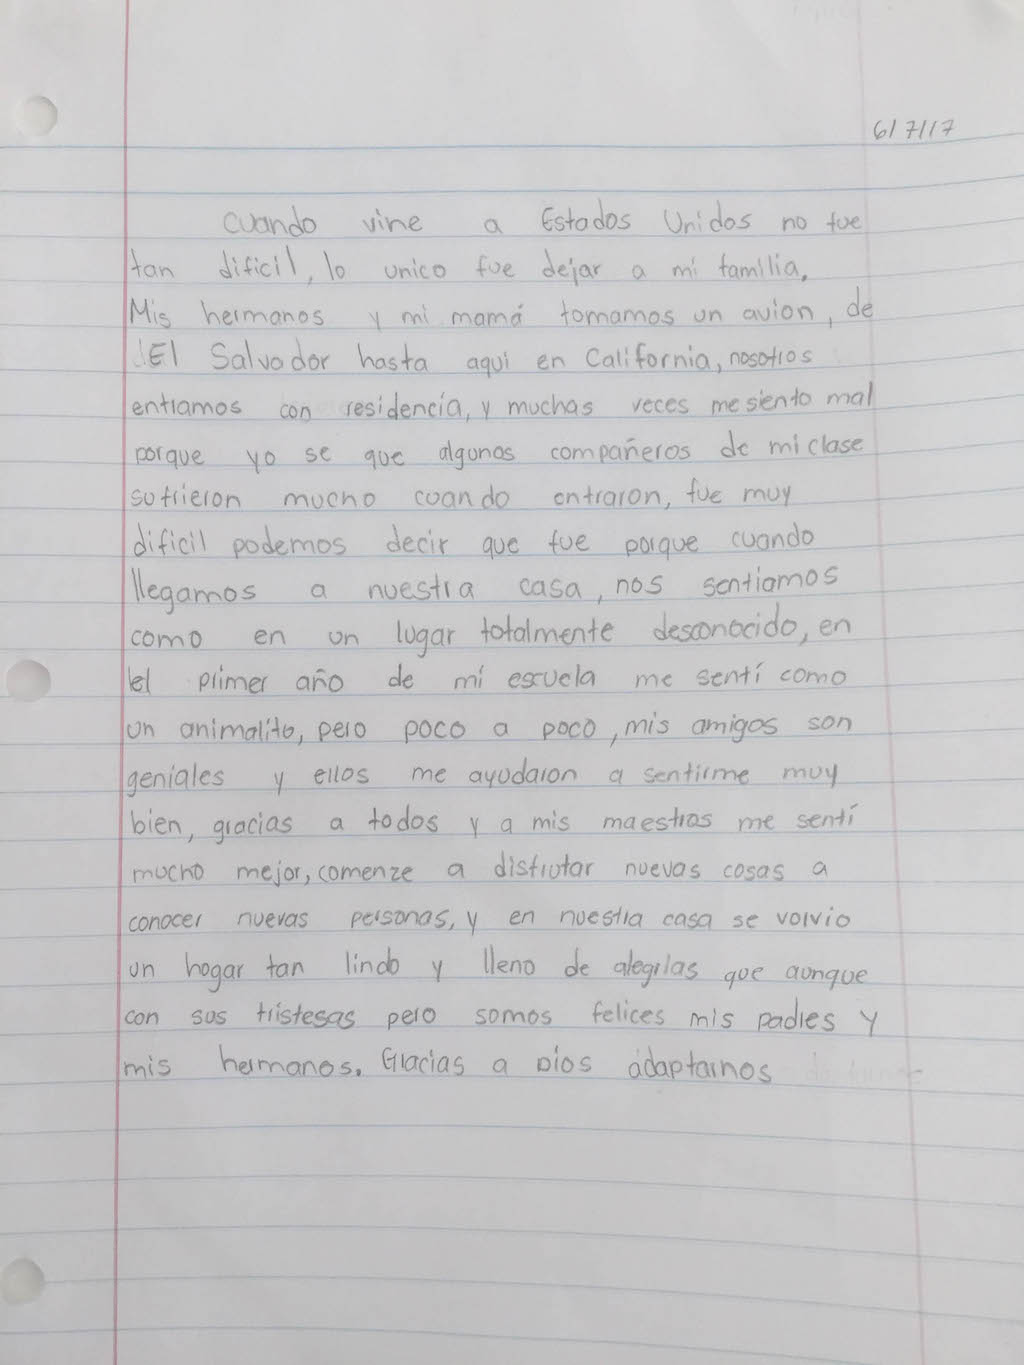 6/7/17
Cuando vine a Estados Unidos no fue
tan dificil, lo unico fue dejar a mi familia.
Mis hermanos y mi mamá tomamos un avion, de
El Salvador hasta aqui en California, nosotros
entramos con residencia, y muchas veces me siento mal
porque yo se que algunos compañeros de mi clase
sufrieron mucho cuando entraron, fue muy
dificil podemos decir que fue porque cuando
llegamos a nuestra casa, nos sentiamos
como en un lugar totalmente desconocido, en
el primer año de mi escuela me sentí como
un animalito, pero poco a poco, mis amigos son
geniales y ellos me ayudaron a sentirme muy
bien, gracias a todos y a mis maestras me sentí
mucho mejor, comenze a disfrutar nuevas cosas a
conocer nuevas personas, y en nuestra casa se volvio
un hogar tan lindo y lleno de alegrias que aunque
con sus tristesas pero somos felices mis padres y
mis hermanos. Gracias a Dios adaptarnos